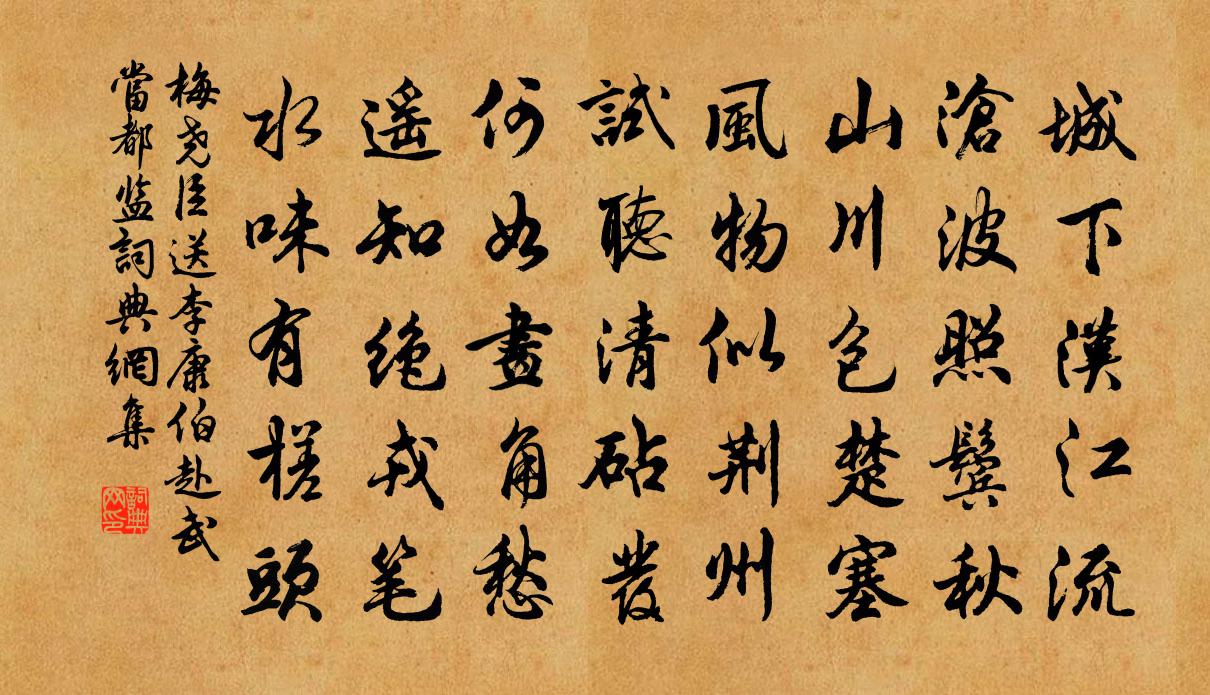 城下漢江流
滄波照鬢秋
山川包楚塞
風物似荆州
試聽清砧發
何如畫角愁
遥知绝戎笔
水味有槎頭
梅尧臣送李康伯赴武
當都监詞典網集
詞典网印